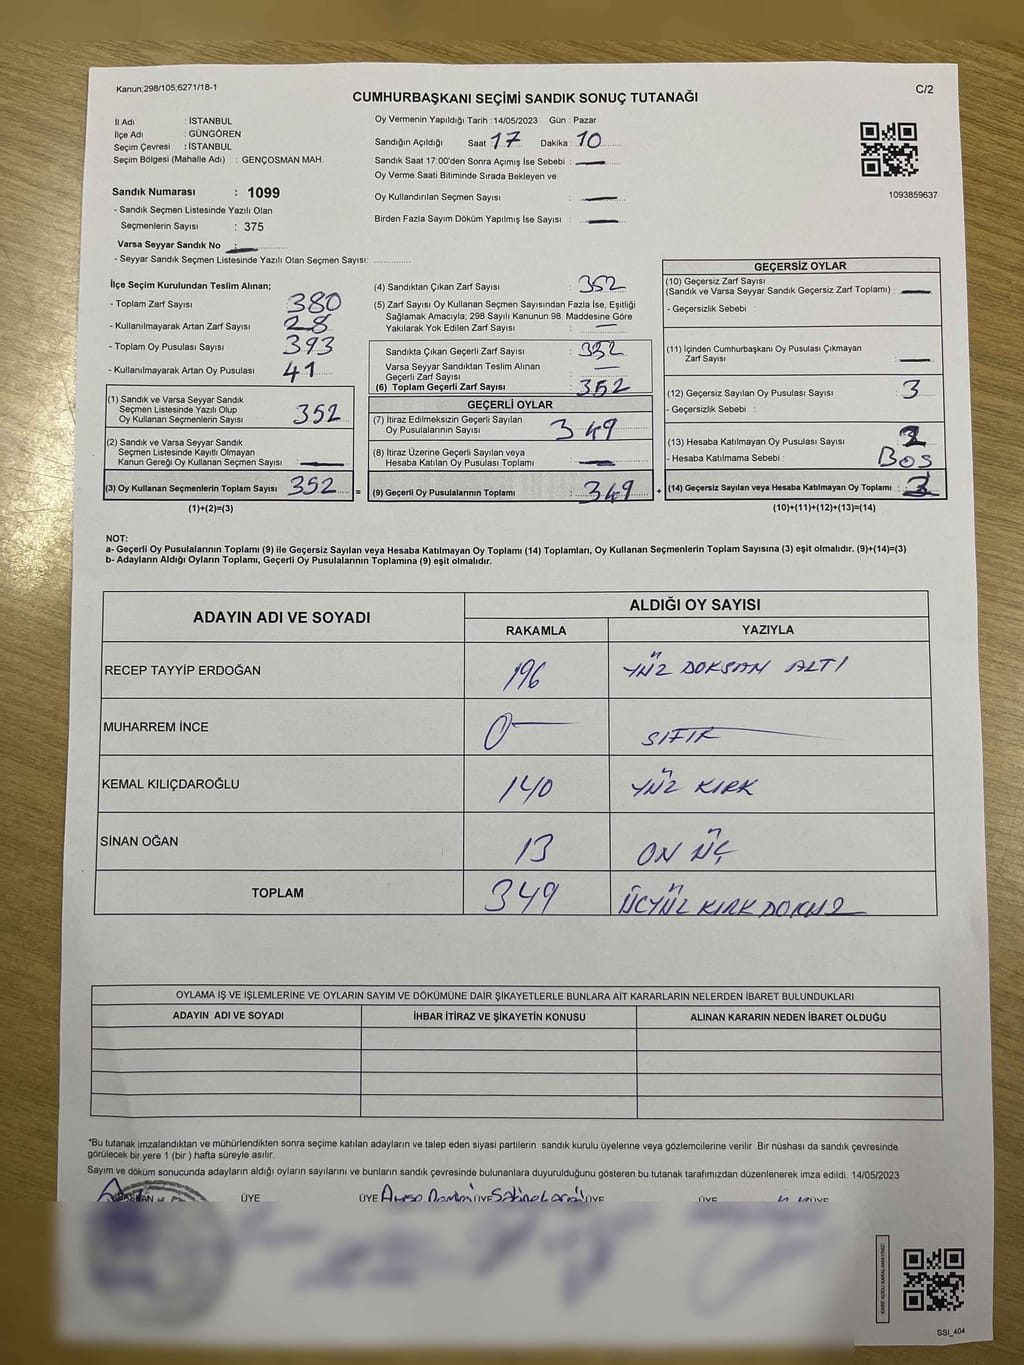 Kanun;298/105;6271/18-1
C/2
CUMHURBAŞKANI SEÇİMİ SANDIK SONUÇ TUTANAĞI
İl Adı : İSTANBUL
İlçe Adı : GÜNGÖREN
Seçim Çevresi : İSTANBUL
Seçim Bölgesi (Mahalle Adı) : GENÇOSMAN MAH.
Sandık Numarası : 1099
- Sandık Seçmen Listesinde Yazılı Olan
Seçmenlerin Sayısı : 375
Varsa Seyyar Sandık No :
- Seyyar Sandık Seçmen Listesinde Yazılı Olan Seçmen Sayısı:
Oy Vermenin Yapıldığı Tarih :14/05/2023 Gün : Pazar
Sandığın Açıldığı Saat 17 Dakika : 10
Sandık Saat 17:00'den Sonra Açımış İse Sebebi :
Oy Verme Saati Bitiminde Sırada Bekleyen ve
Oy Kullandırılan Seçmen Sayısı :
Birden Fazla Sayım Döküm Yapılmış İse Sayısı :
1093859637
İlçe Seçim Kurulundan Teslim Alınan;
- Toplam Zarf Sayısı : 380
- Kullanılmayarak Artan Zarf Sayısı : 28
- Toplam Oy Pusulası Sayısı : 393
- Kullanılmayarak Artan Oy Pusulası : 41
(1) Sandık ve Varsa Seyyar Sandık
Seçmen Listesinde Yazılı Olup
Oy Kullanan Seçmenlerin Sayısı : 352
(2) Sandık ve Varsa Seyyar Sandık
Seçmen Listesinde Kayıtlı Olmayan
Kanun Gereği Oy Kullanan Seçmen Sayısı :
(3) Oy Kullanan Seçmenlerin Toplam Sayısı : 352
(1)+(2)=(3)
(4) Sandıktan Çıkan Zarf Sayısı : 352
(5) Zarf Sayısı Oy Kullanan Seçmen Sayısından Fazla İse, Eşitliği
Sağlamak Amacıyla; 298 Sayılı Kanunun 98. Maddesine Göre
Yakılarak Yok Edilen Zarf Sayısı :
Sandıkta Çıkan Geçerli Zarf Sayısı : 352
Varsa Seyyar Sandıktan Teslim Alınan
Geçerli Zarf Sayısı
(6) Toplam Geçerli Zarf Sayısı : 352
GEÇERLİ OYLAR
(7) İtiraz Edilmeksizin Geçerli Sayılan
Oy Pusulalarının Sayısı : 349
(8) İtiraz Üzerine Geçerli Sayılan veya
Hesaba Katılan Oy Pusulası Toplamı :
= (9) Geçerli Oy Pusulalarının Toplamı : 349 +
GEÇERSİZ OYLAR
(10) Geçersiz Zarf Sayısı
(Sandık ve Varsa Seyyar Sandık Geçersiz Zarf Toplamı) :
- Geçersizlik Sebebi :
(11) İçinden Cumhurbaşkanı Oy Pusulası Çıkmayan
Zarf Sayısı :
(12) Geçersiz Sayılan Oy Pusulası Sayısı : 3
- Geçersizlik Sebebi :
(13) Hesaba Katılmayan Oy Pusulası Sayısı :
- Hesaba Katılmama Sebebi : Boş
(14) Geçersiz Sayılan veya Hesaba Katılmayan Oy Toplamı : 3
(10)+(11)+(12)+(13)=(14)
NOT:
a- Geçerli Oy Pusulalarının Toplamı (9) ile Geçersiz Sayılan veya Hesaba Katılmayan Oy Toplamı (14) Toplamları, Oy Kullanan Seçmenlerin Toplam Sayısına (3) eşit olmalıdır. (9)+(14)=(3)
b- Adayların Aldığı Oyların Toplamı, Geçerli Oy Pusulalarının Toplamına (9) eşit olmalıdır.
ADAYIN ADI VE SOYADI
ALDIĞI OY SAYISI
RAKAMLA YAZIYLA
RECEP TAYYİP ERDOĞAN 196 YÜZ DOKSAN ALTI
MUHARREM İNCE 0 SIFIR
KEMAL KILIÇDAROĞLU 140 YÜZ KIRK
SİNAN OĞAN 13 ON ÜÇ
TOPLAM 349 ÜÇYÜZ KIRK DOKUZ
OYLAMA İŞ VE İŞLEMLERİNE VE OYLARIN SAYIM VE DÖKÜMÜNE DAİR ŞİKAYETLERLE BUNLARA AİT KARARLARIN NELERDEN İBARET BULUNDUKLARI
ADAYIN ADI VE SOYADI İHBAR İTİRAZ VE ŞİKAYETİN KONUSU ALINAN KARARIN NEDEN İBARET OLDUĞU
*Bu tutanak imzalandıktan ve mühürlendikten sonra seçime katılan adayların ve talep eden siyasi partilerin sandık kurulu üyelerine veya gözlemcilerine verilir. Bir nüshası da sandık çevresinde
görülecek bir yere 1 (bir ) hafta süreyle asılır.
Sayım ve döküm sonucunda adayların aldığı oyların sayılarını ve bunların sandık çevresinde bulunanlara duyurulduğunu gösteren bu tutanak tarafımızdan düzenlenerek imza edildi. 14/05/2023
BAŞKAN ÜYE ÜYE ÜYE ÜYE ÜYE ÜYE
SSI_404